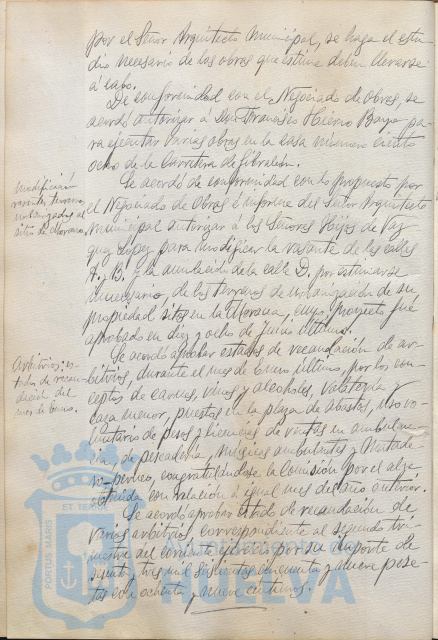 por el Señor Arquitecto Municipal, se haga el estu-
dio necesario de las obras que estime deben llevarse
á cabo.
De conformidad con el Negociado de Obras, se
acordó autorizar á Don Francisco Hierro Borja pa-
ra ejecutar varias obras en la casa número ciento
ocho de la Carretera de Gibraleón.
Modificación
rasante terrenos
urbanizados al
sitio de Morana.
Se acordó de conformidad con lo propuesto por
el Negociado de Obras é informe del Señor Arquitecto
Municipal autorizar á los Señores Hijos de Vaz
quez Lopez para modificar la rasante de las calles
A. y B. y la anulación de la calle D, por estimarse
innecesario, de los terrenos de urbanización de su
propiedad sitos en la Morana, cuyo proyecto fué
aprobado en diez y ocho de Junio último.
Arbitrios: es-
tados de recau-
dación del
mes de Enero.
Se acordó aprobar estados de recaudación de ar-
bitrios, durante el mes de Enero último, por los con-
ceptos de carnes, vinos y alcoholes, volatería y
caza menor, puestos en la plaza de abastos, uso vo-
luntario de pesos y licencias de ventas en ambulan-
cia, de pescadería, ambulantes y Matade-
ro perlico, congratulándose la Comisión por el alza
obtenida con relación á igual mes del año anterior.
Se acordó aprobar estado de recaudación de
varios arbitrios, correspondiente al segundo tri-
mestre del corriente ejercicio por su importe de
tres mil seiscientas cincuenta y nueve pese-
tas con ochenta y nueve centimos.
PORTUS MARIS
ET TERRAE
HUELVA